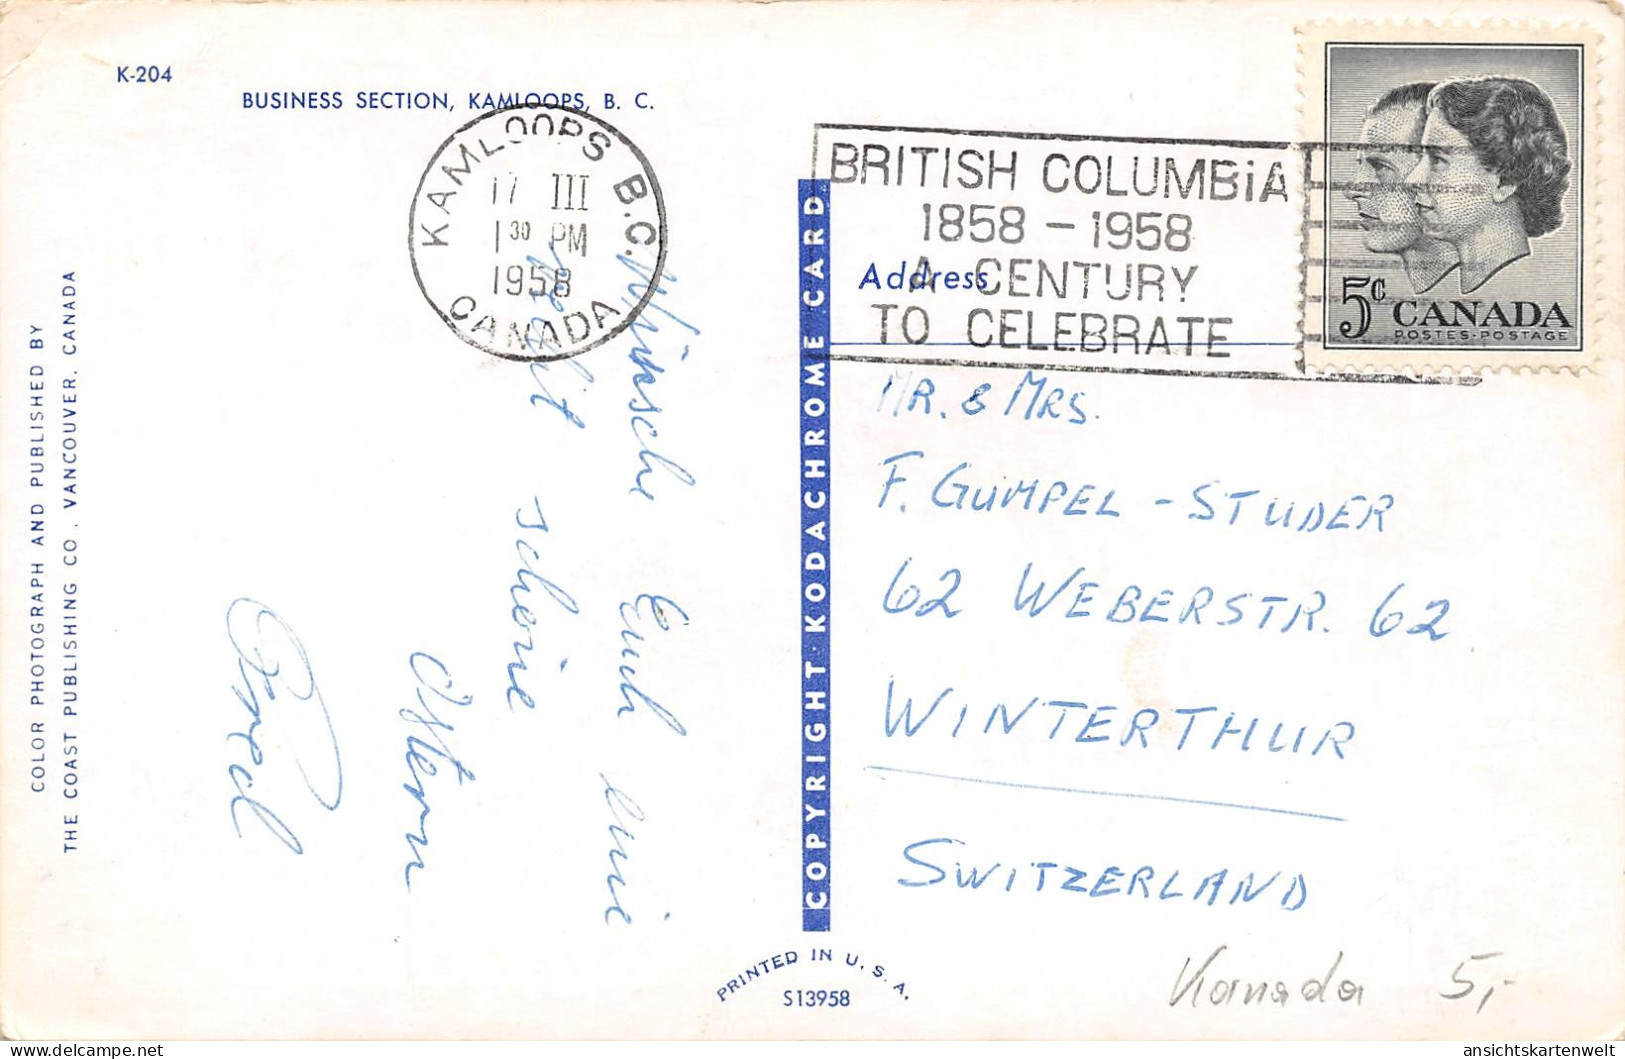 K-204
BUSINESS SECTION, KAMLOOPS, B. C.
KAMLOOPS B.C.
17 III
1 30 PM
1958
CANADA
BRITISH COLUMBiA
1858 - 1958
A CENTURY
TO CELEBRATE
5c CANADA
POSTES·POSTAGE
Address
COLOR PHOTOGRAPH AND PUBLISHED BY
THE COAST PUBLISHING CO. VANCOUVER, CANADA
Wünsche Euch eine
recht schöne
Ostern
COPYRIGHT·KODACHROME CARD
MR. & MRS.
F. GUMPEL-STUDER
62 WEBERSTR. 62
WINTERTHUR
SWITZERLAND
PRINTED IN U.S.A.
S13958
Kanada 5,-
ansichtskartenwelt